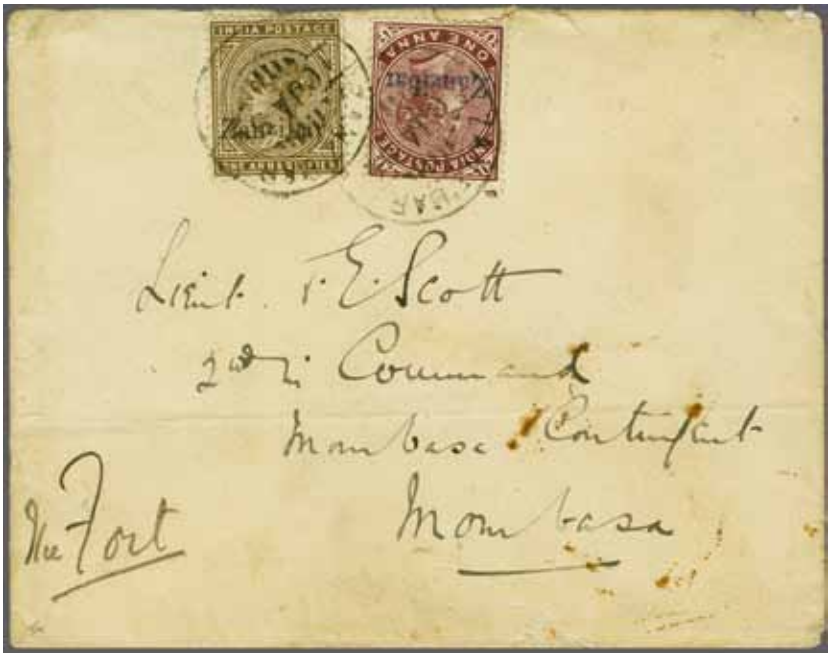 INDIA POSTAGE
Zanzibar
ONE ANNA
Zanzibar
INDIA POSTAGE
Lieut. E. Scott
2nd in Command
Mombasa Contingent
Mombasa
The Fort